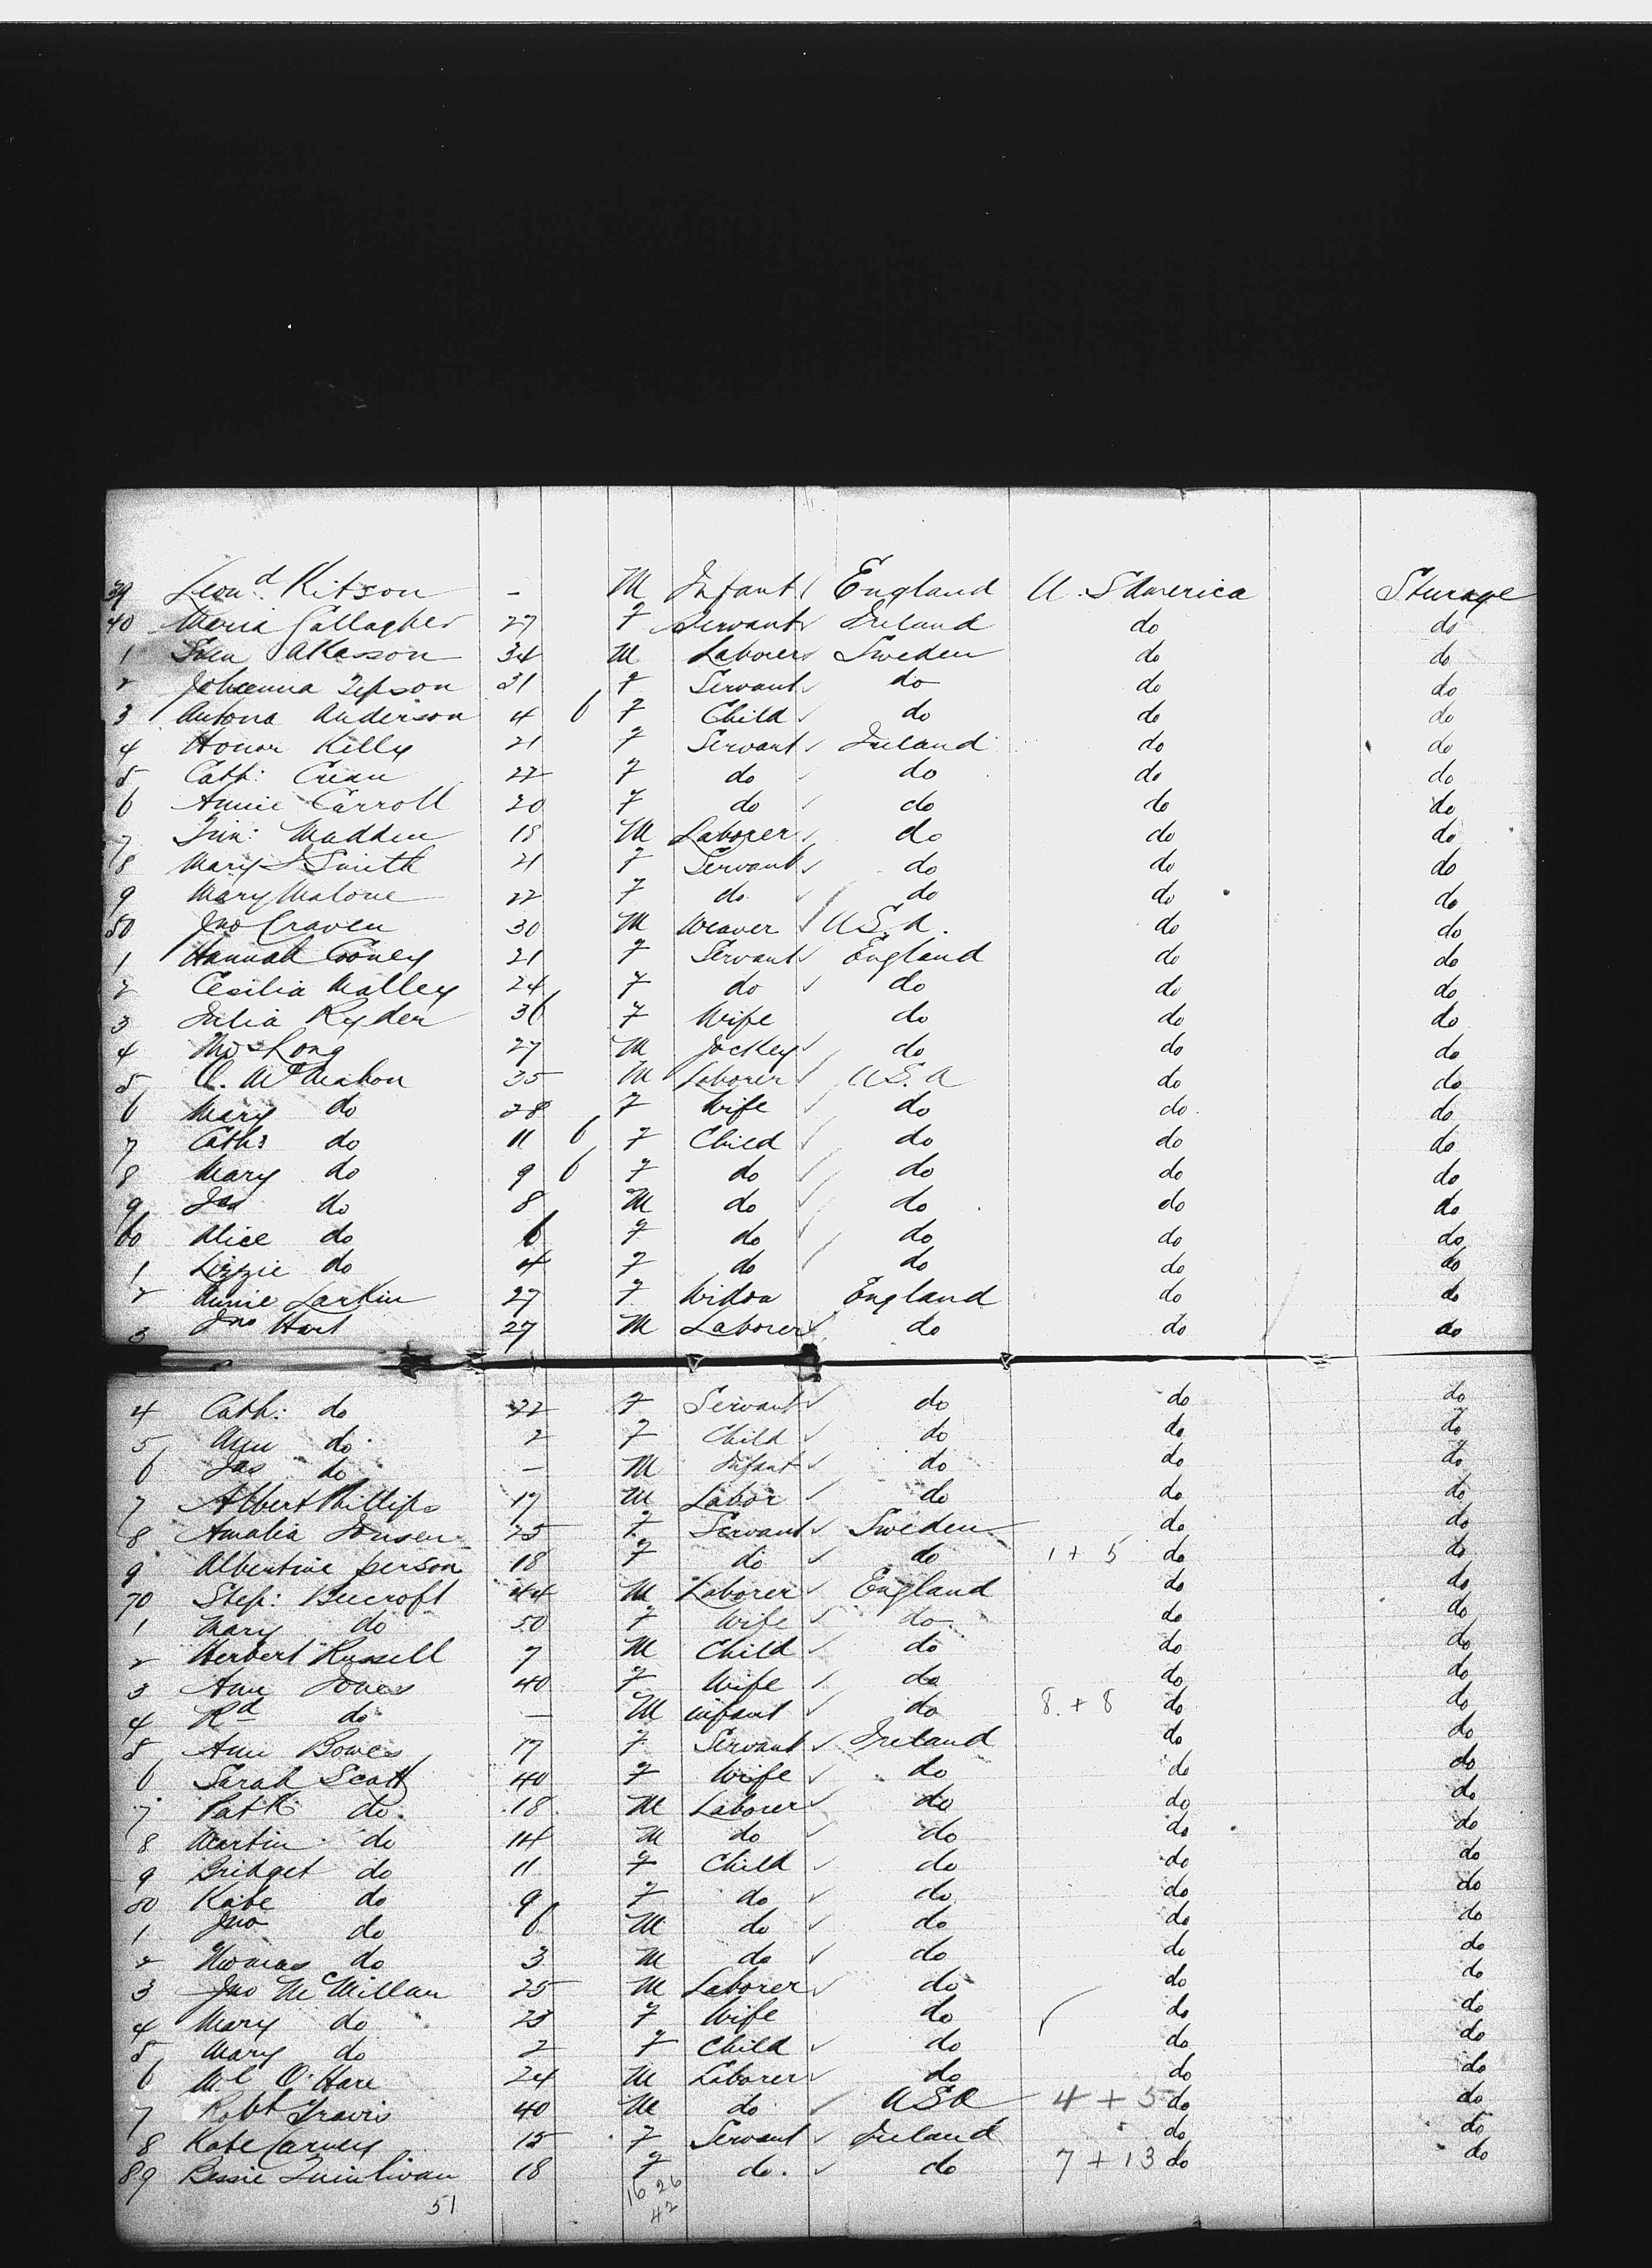 39 Leon.d Kitson - M Infant England U. S America Sturage
40 Maria Gallagher 27 F Servant Ireland do do
1 Sven 34 M Laborer Sweden do do
2 Johanna 31 F Servant do do do
3 Antona Anderson 4 F Child do do do
4 Honor Kelly 21 F Servant Ireland do do
5 Cath: Crean 22 F do do do do
6 Annie Carroll 20 F do do do do
7 Madden 18 M Laborer do do do
8 Mary Smith 21 F Servant do do do
9 Mary Malone 22 F do do do do
50 Jno Craven 30 M Weaver U.S.A. do do
1 Hannah Cooney 21 F Servant England do do
2 Cecilia Malley 24 F do do do do
3 Julia Ryder 36 F Wife do do do
4 Thos Long 27 M Jockey do do do
5 McMahon 35 M Laborer U.S.A do do
6 Mary do 28 F Wife do do do
7 Cath: do 11 F Child do do do
8 Mary do 9 F do do do do
9 Jas do 8 M do do do do
60 Alice do 6 F do do do do
1 Lizzie do 4 F do do do do
2 Annie Larkin 27 F Widow England do do
3 Jno Hart 27 M Laborer do do do
4 Cath: do 22 F Servant do do do
5 Ann do 2 F Child do do do
6 Jas do - M Infant do do do
7 Albert Phillips 17 M Labor do do do
8 Amalia Jonsen 25 F Servant Sweden do do
9 Albertine person 18 F do do 1 + 5 do do
70 Step: Becroft 44 M Laborer England do do
1 Mary do 50 F Wife do do do
2 Herbert Russell 7 M Child do do do
3 Ann Jones 40 F Wife do do do
4 Rd do - M infant do 8 + 8 do do
5 Ann Bowes 17 F Servant Ireland do do
6 Sarah Scott 40 F Wife do do do
7 Patk do 18 M Laborer do do do
8 Martin do 14 M do do do do
9 Bridget do 11 F Child do do do
80 Kate do 9 F do do do do
1 Jno do 6 M do do do do
2 Thomas do 3 M do do do do
3 Jno McMillan 25 M Laborer do do do
4 Mary do 23 F Wife do do do
5 Mary do 2 F Child do do do
6 Ml O'Hare 24 M Laborer do do do
7 Robt Travis 40 M do USA 4 + 5 do do
8 Kate Carney 15 F Servant Ireland do do
89 Bessie Quinlivan 18 F do. do 7 + 13 do do
16 26
51 42